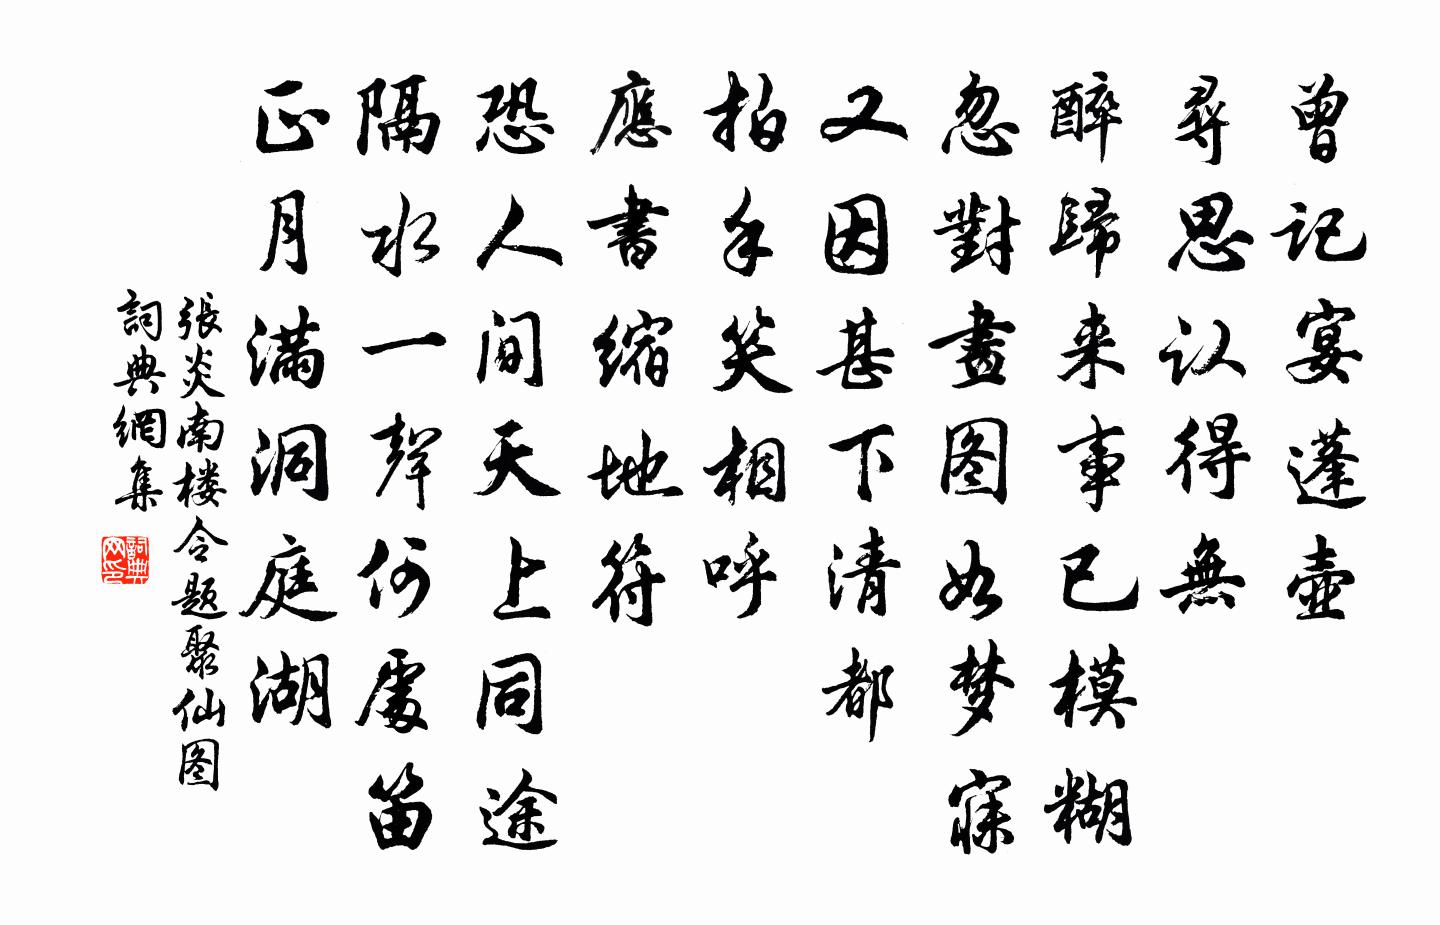 曾记宴蓬壶
尋思认得無
醉歸来事已模糊
忽對畫图如梦寐
又因甚下清都
拍手笑相呼
應書缩地符
恐人间天上同途
隔水一聲何處笛
正月满洞庭湖
張炎南楼令题聚仙图
詞典網集
詞典网印